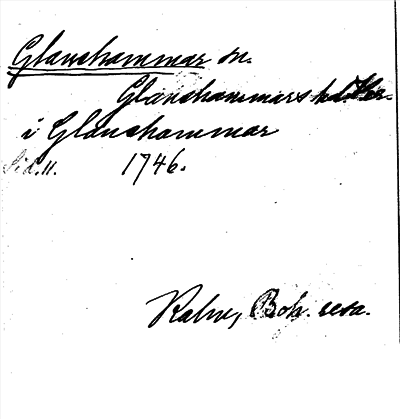 Glanshammar sn.
Glanshammars
i Glanshammar
Sid. 11. 1746.
Kalm, Boh. resa.